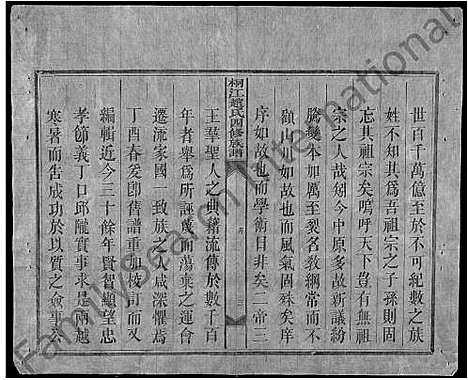 世百千萬億至於不可紀數之族
姓不知其爲吾祖宗之子孫則固
忘其祖宗矣嗚呼天下豈有無祖
宗之人哉矧今中原多故新議紛
騰幾不如厲至裂名敎綱常而不
顧山川如故也而風氣固殊矣庠
序如故也而學術日非矣二帝三
桐江趙氏四修族譜
序
三
王羣聖人之典籍流傳於數千百
年者舉爲所誣蔑而蕩棄之運會
遷流家國一致族之人咸深懼焉
丁酉春爰卽舊譜重加校訂而又
編輯近今三十餘年賢智顯望忠
孝節義丁口邱隴實事求是兩越
寒暑而告成功於以質之僉事
FamilySearch International